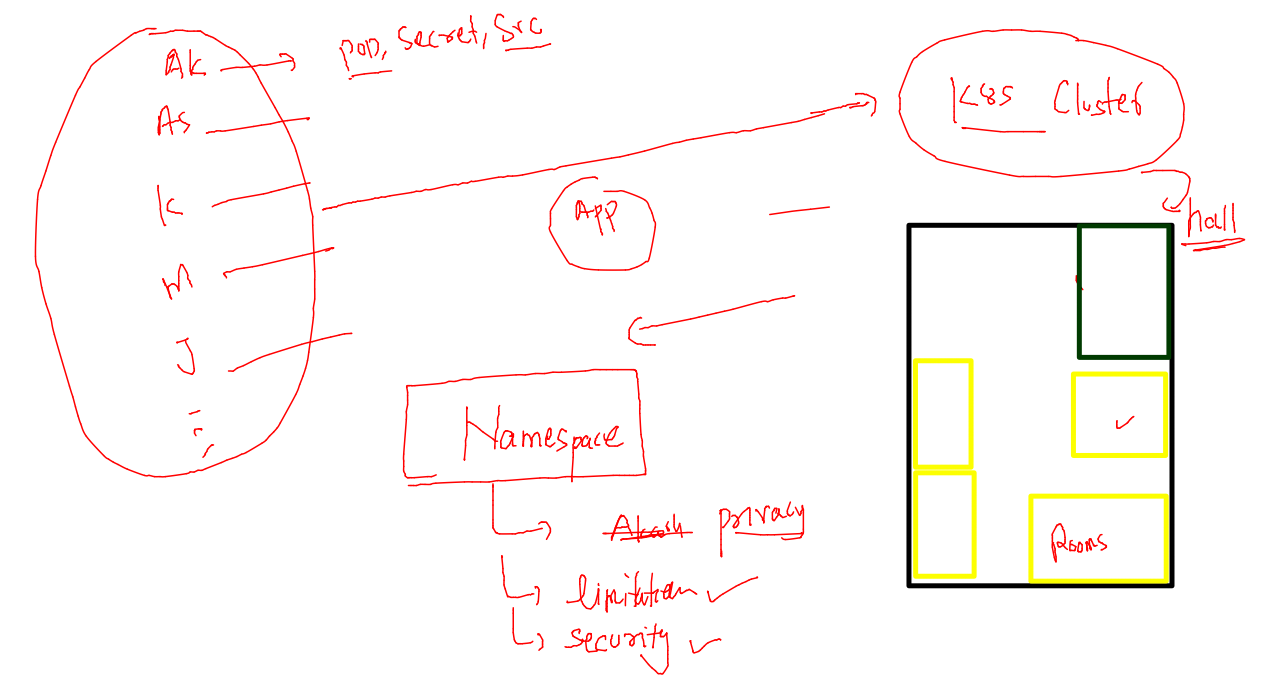 Ak → POD, Secret, Src
As
K
M
J
K8S Cluster
App
hall
Namespace
privacy
limitation ✓
Security ✓
✓
Rooms